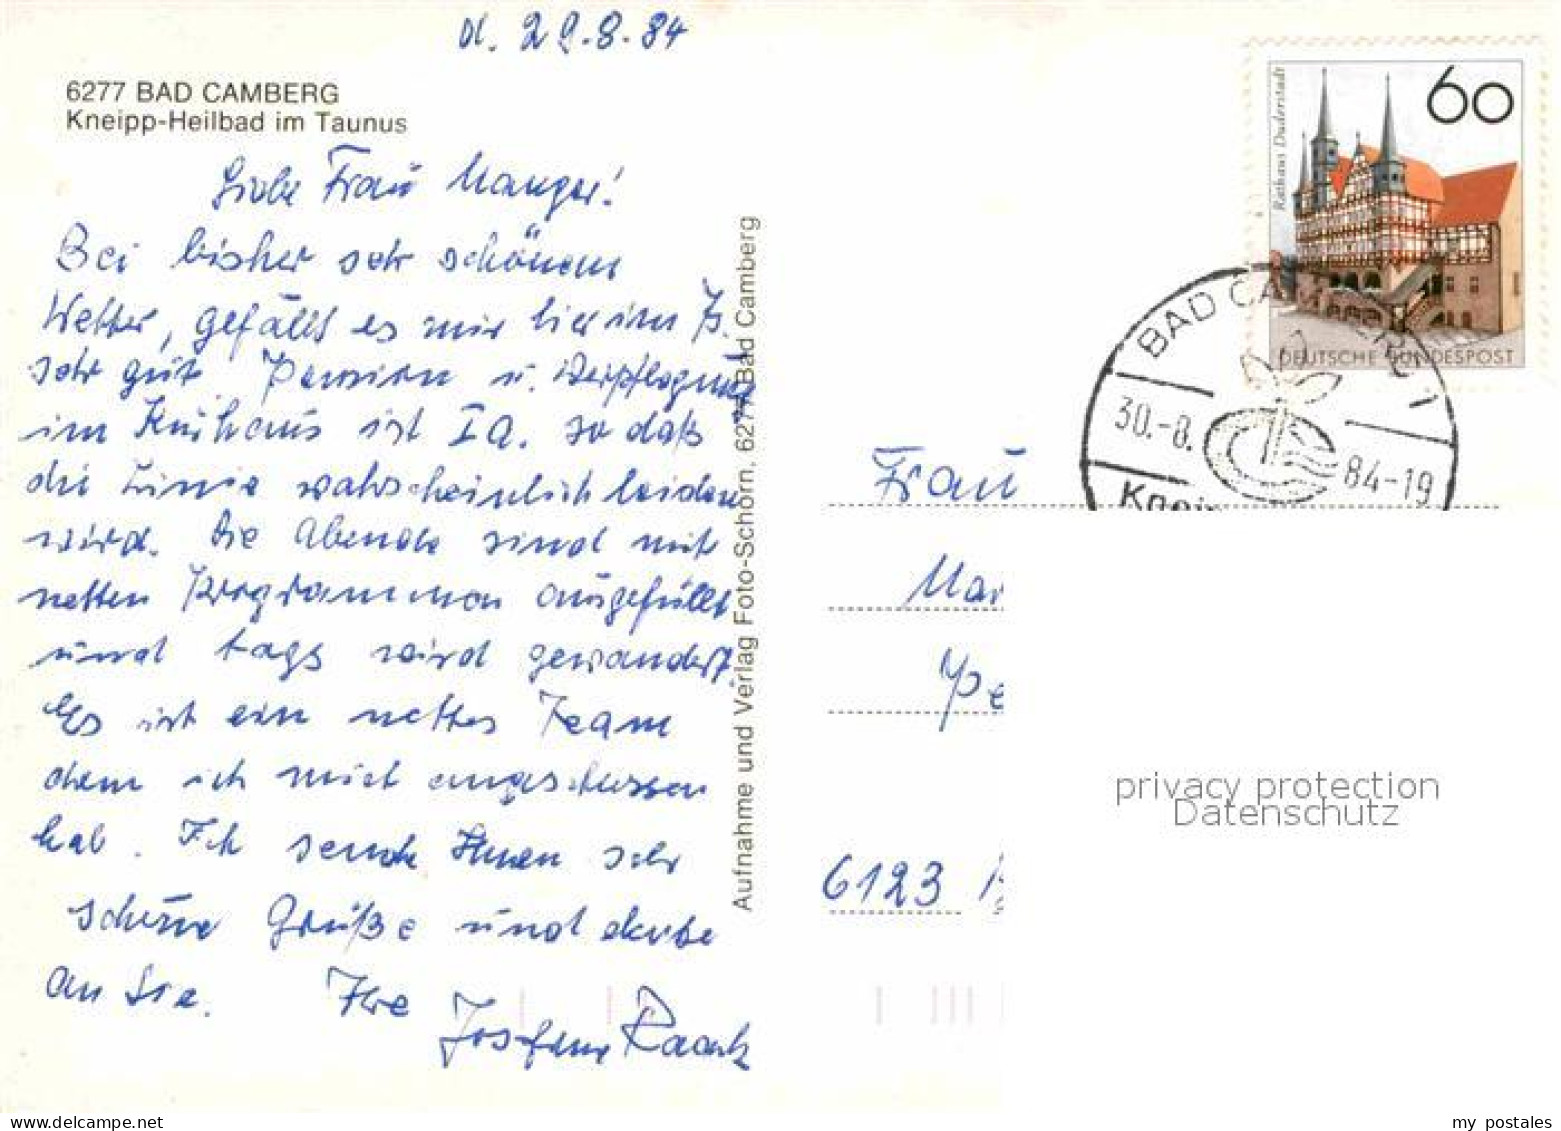 d. 29.8.84
6277 BAD CAMBERG
Kneipp-Heilbad im Taunus
Liebe Frau Manger!
Bei bisher sehr schönem
Wetter, gefällt es mir hier im B.
sehr gut Pension u. Verpflegung
im Kurhaus ist I a. so daß
die Linie wahrscheinlich leiden
wird. Die Abende sind mit
netten Programmen ausgefüllt
und tags wird gewandert.
Es ist ein nettes Team
dem ich mich angeschlossen
hab. Ich sende Ihnen sehr
schöne Grüße und denke
an Sie. Ihre
Josefine
Aufnahme und Verlag Foto-Schorn, 6277 Bad Camberg
Rathaus Duderstadt
60
DEUTSCHE BUNDESPOST
BAD CAMBERG 1
30.-8.
84-19
Kneip
Frau
Mar
Pe
6123
privacy protection
Datenschutz
my postales